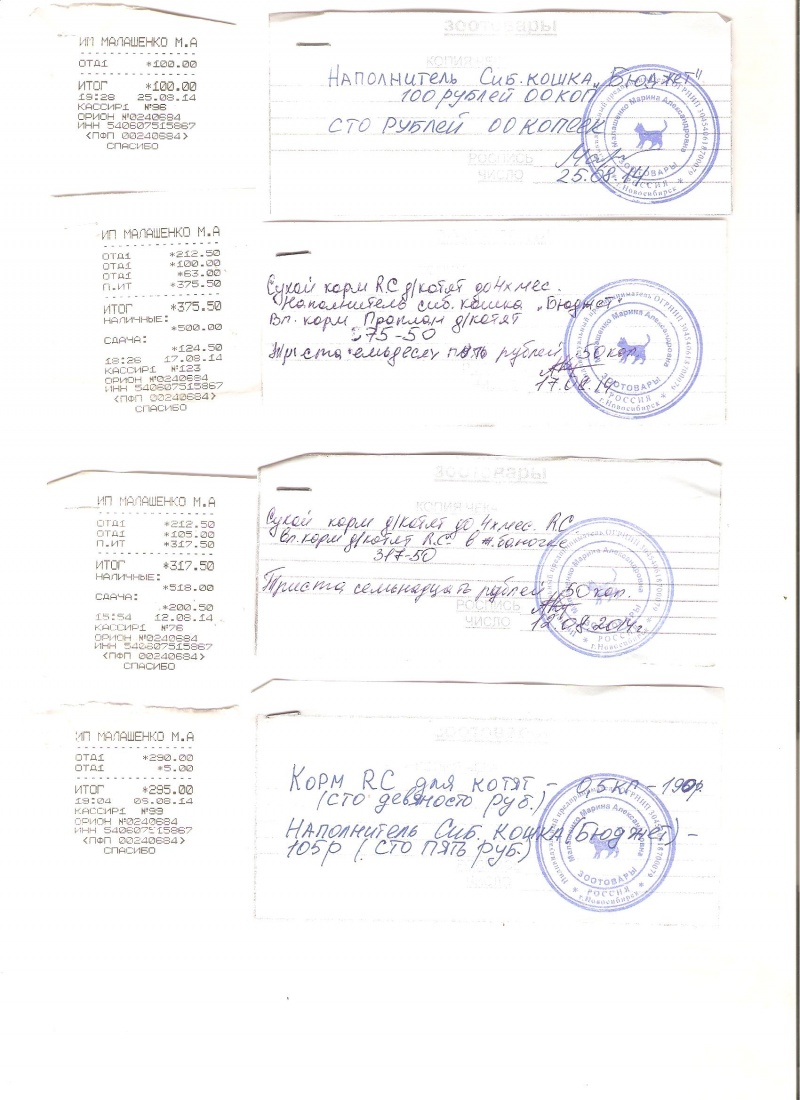 ИП МАЛАШЕНКО М.А
ОТД1 *100.00
ИТОГ *100.00
19:28 25.08.14
КАССИР1 №96
ОРИОН №0240684
ИНН 540607515867
<ПФП 00240684>
СПАСИБО
зоотовары
КОПИЯ ЧЕ
Наполнитель Сиб. кошка „Бюджет"
100 рублей 00 коп
сто рублей 00 копеек
РОСПИСЬ
ЧИСЛО 25.08.14
Малашенко Марина Александровна
ЗООТОВАРЫ
РОССИЯ
г.Новосибирск
ИП МАЛАШЕНКО М.А
ОТД1 *212.50
ОТД1 *100.00
ОТД1 *63.00
П.ИТ *375.50
ИТОГ *375.50
НАЛИЧНЫЕ:
*500.00
СДАЧА:
*124.50
18:26 17.08.14
КАССИР1 №123
ОРИОН №0240684
ИНН 540607515867
<ПФП 00240684>
СПАСИБО
Сухой корм RC д/котят до 4х мес.
Наполнитель сиб. кошка „Бюджет"
Вл. корм Проплан д/котят
375-50
Триста семьдесят пять рублей 50 коп.
17.08.14
Малашенко Марина Александровна
ЗООТОВАРЫ
РОССИЯ
г.Новосибирск
ИП МАЛАШЕНКО М.А
ОТД1 *212.50
ОТД1 *105.00
П.ИТ *317.50
ИТОГ *317.50
НАЛИЧНЫЕ:
*518.00
СДАЧА:
*200.50
15:54 12.08.14
КАССИР1 №76
ОРИОН №0240684
ИНН 540607515867
<ПФП 00240684>
СПАСИБО
зоотовары
КОПИЯ ЧЕК
Сухой корм д/котят до 4х мес. RC
Вл. корм д/котят RC в ж.баночке
317-50
Триста семьнадцать рублей 50 коп.
РОСПИСЬ
ЧИСЛО 12.08.2014г.
Малашенко Марина Александровна
РОССИЯ
г.Новосибирск
ИП МАЛАШЕНКО М.А
ОТД1 *290.00
ОТД1 *5.00
ИТОГ *295.00
19:04 05.08.14
КАССИР1 №99
ОРИОН №0240684
ИНН 540607515867
<ПФП 00240684>
СПАСИБО
Корм RC для котят – 0,5 кг – 190р.
(сто девяносто руб.)
Наполнитель Сиб. кошка (Бюджет) –
105р (сто пять руб.)
Малашенко Марина Александровна
ЗООТОВАРЫ
РОССИЯ
г.Новосибирск